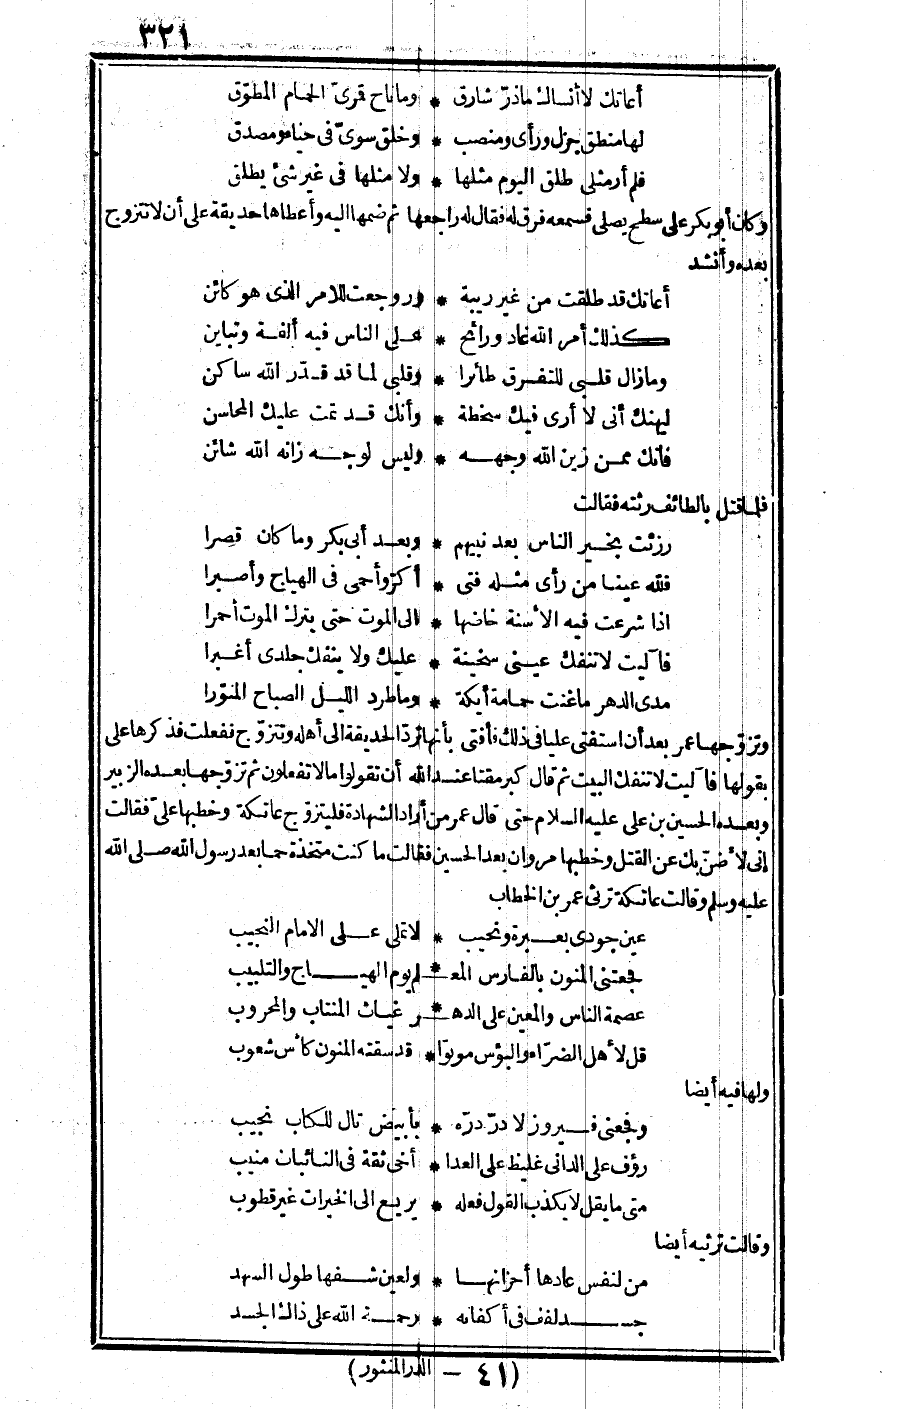 ٣٢١
أعاتك لا أنساك ماذرّ شارق * وماناح قمرىّ الحمام المطوّق
لها منطق جزل ورأى ومنصب * وخلق سوىّ فى حياء ومصدق
فلم أر مثلى طلق اليوم مثلها * ولا مثلها فى غير شئ يطلق
وكان أبو بكر على سطح يصلى فسمعه فرق له فقال له راجعها ثم ضمها اليه وأعطاها حديقة على أن لا تتزوج
بعده وأنشد
أعاتك قد طلقت من غير ريبة * وروجعت للامر الذى هو كائن
كذلك أمر الله غاد ورائح * على الناس فيه ألفة وتباين
ومازال قلبى للتفرق طائرا * وقلبى لما قد قدّر الله ساكن
ليهنك أنى لا أرى فيك سخطة * وأنك قد تمت عليك المحاسن
فانك ممن زين الله وجهه * وليس لوجه زانه الله شائن
فلما قتل بالطائف رثته فقالت
رزئت بخير الناس بعد نبيهم * وبعد أبى بكر وما كان قصرا
فلله عينا من رأى مثله فتى * أكرّ وأحمى فى الهياج وأصبرا
اذا شرعت فيه الأسنة خاضها * الى الموت حتى يترك الموت أحمرا
فآليت لا تنفك عينى سخينة * عليك ولا ينفك جلدى أغبرا
مدى الدهر ماغنت حمامة أيكة * وماطرد الليل الصباح المنوّرا
وتزوّجها عمر بعد أن استفتى عليا فى ذلك فأفتى بأنها تردّ الحديقة الى أهله وتتزوّج ففعلت فذكرها على
بقولها فآليت لا تنفك البيت ثم قال كبر مقتا عند الله أن تقولوا مالا تفعلون ثم تزوّجها بعده الزبير
وبعده الحسين بن على عليه السلام حتى قال عمر من أراد الشهادة فليتزوّج عاتكة وخطبها علىّ فقالت
إنى لأضنّ بك عن القتل وخطبها مروان بعد الحسين فقالت ما كنت متخذة حما بعد رسول الله صلى الله
عليه وسلم وقالت عاتكة ترثى عمر بن الخطاب
عين جودى بعبرة ونحيب * لا تملى على الامام النجيب
فجعتنى المنون بالفارس المعـ * ـلم يوم الهياج والتلبيب
عصمة الناس والمعين على الدهـ * ـر غياث المنتاب والمحروب
قل لأهل الضرّاء والبؤس موتوا * قد سقته المنون كأس شعوب
ولها فيه أيضا
وفجعنى فيروز لا درّ درّه * بأبيض تال للكتاب نجيب
رؤف على الدانى غليظ على العدا * أخى ثقة فى النائبات منيب
متى ما يقل لا يكذب القول فعله * يريع الى الخيرات غير قطوب
وقالت ترثيه أيضا
من لنفس عادها أحزانها * ولعين شفها طول السهد
جسد لفف فى أكفانه * رحمة الله على ذاك الجسد
(٤١ – الدر المنثور)